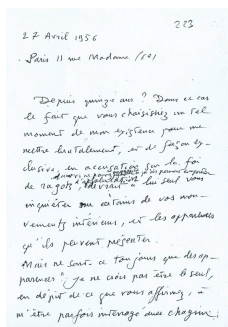 223
27 Avril 1956
Paris 11 rue Madame (6e)
Depuis quinze ans ? Dans ce cas
le fait que vous choisissiez un tel
moment de mon existence pour me
mettre brutalement, et de façon ex-
clusive, en accusation sur la foi
de ragots devrait à lui seul vous
inquiéter sur certains de vos mou-
vements intérieurs, et les apparences
qu'ils peuvent présenter.
Mais ne sont-ce toujours que des ap-
parences ? Je ne crois pas être le seul,
en dépit de ce que vous affirmez, à
m'être parfois interrogé avec chagrin